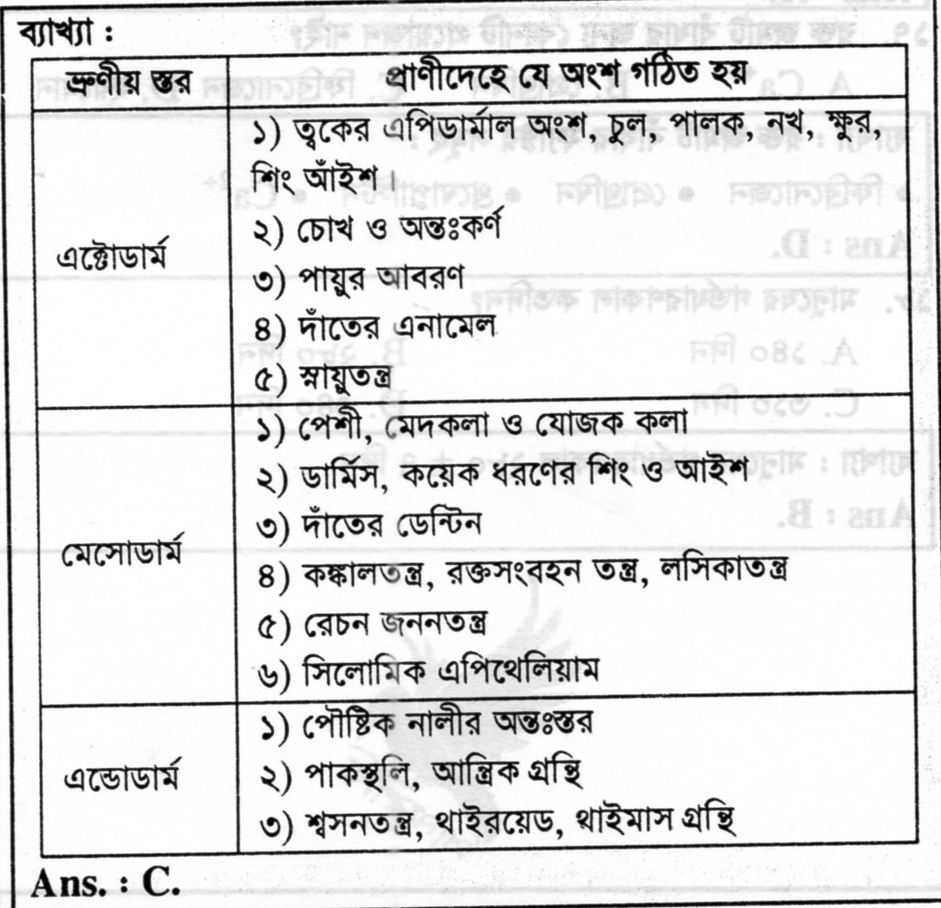 ব্যাখ্যা :
ভ্রুণীয় স্তর	প্রাণীদেহে যে অংশ গঠিত হয়
এক্টোডার্ম
১) ত্বকের এপিডার্মাল অংশ, চুল, পালক, নখ, ক্ষুর,
শিং আঁইশ।
২) চোখ ও অন্তঃকর্ণ
৩) পায়ুর আবরণ
৪) দাঁতের এনামেল
৫) স্নায়ুতন্ত্র
মেসোডার্ম
১) পেশী, মেদকলা ও যোজক কলা
২) ডার্মিস, কয়েক ধরণের শিং ও আইশ
৩) দাঁতের ডেন্টিন
৪) কঙ্কালতন্ত্র, রক্তসংবহন তন্ত্র, লসিকাতন্ত্র
৫) রেচন জননতন্ত্র
৬) সিলোমিক এপিথেলিয়াম
এন্ডোডার্ম
১) পৌষ্টিক নালীর অন্তঃস্তর
২) পাকস্থলি, আন্ত্রিক গ্রন্থি
৩) শ্বসনতন্ত্র, থাইরয়েড, থাইমাস গ্রন্থি
Ans. : C.